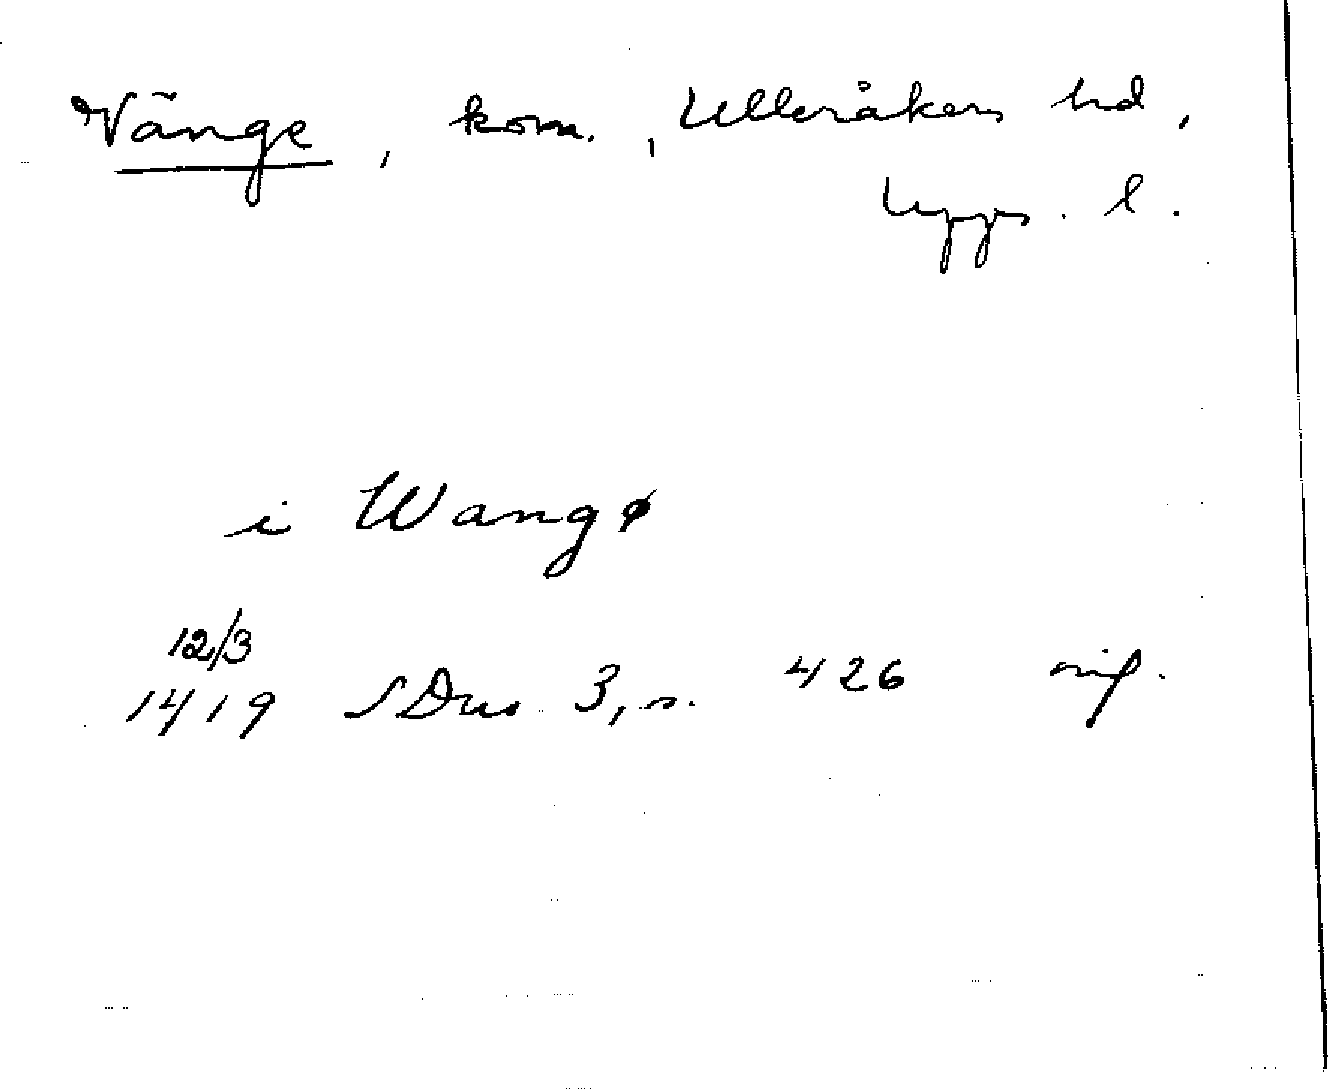 Vänge, kom., Ulleråkers hd,
Upps. l.
i Wangø
12/3
1419 SDns 3, s. 426 orig.